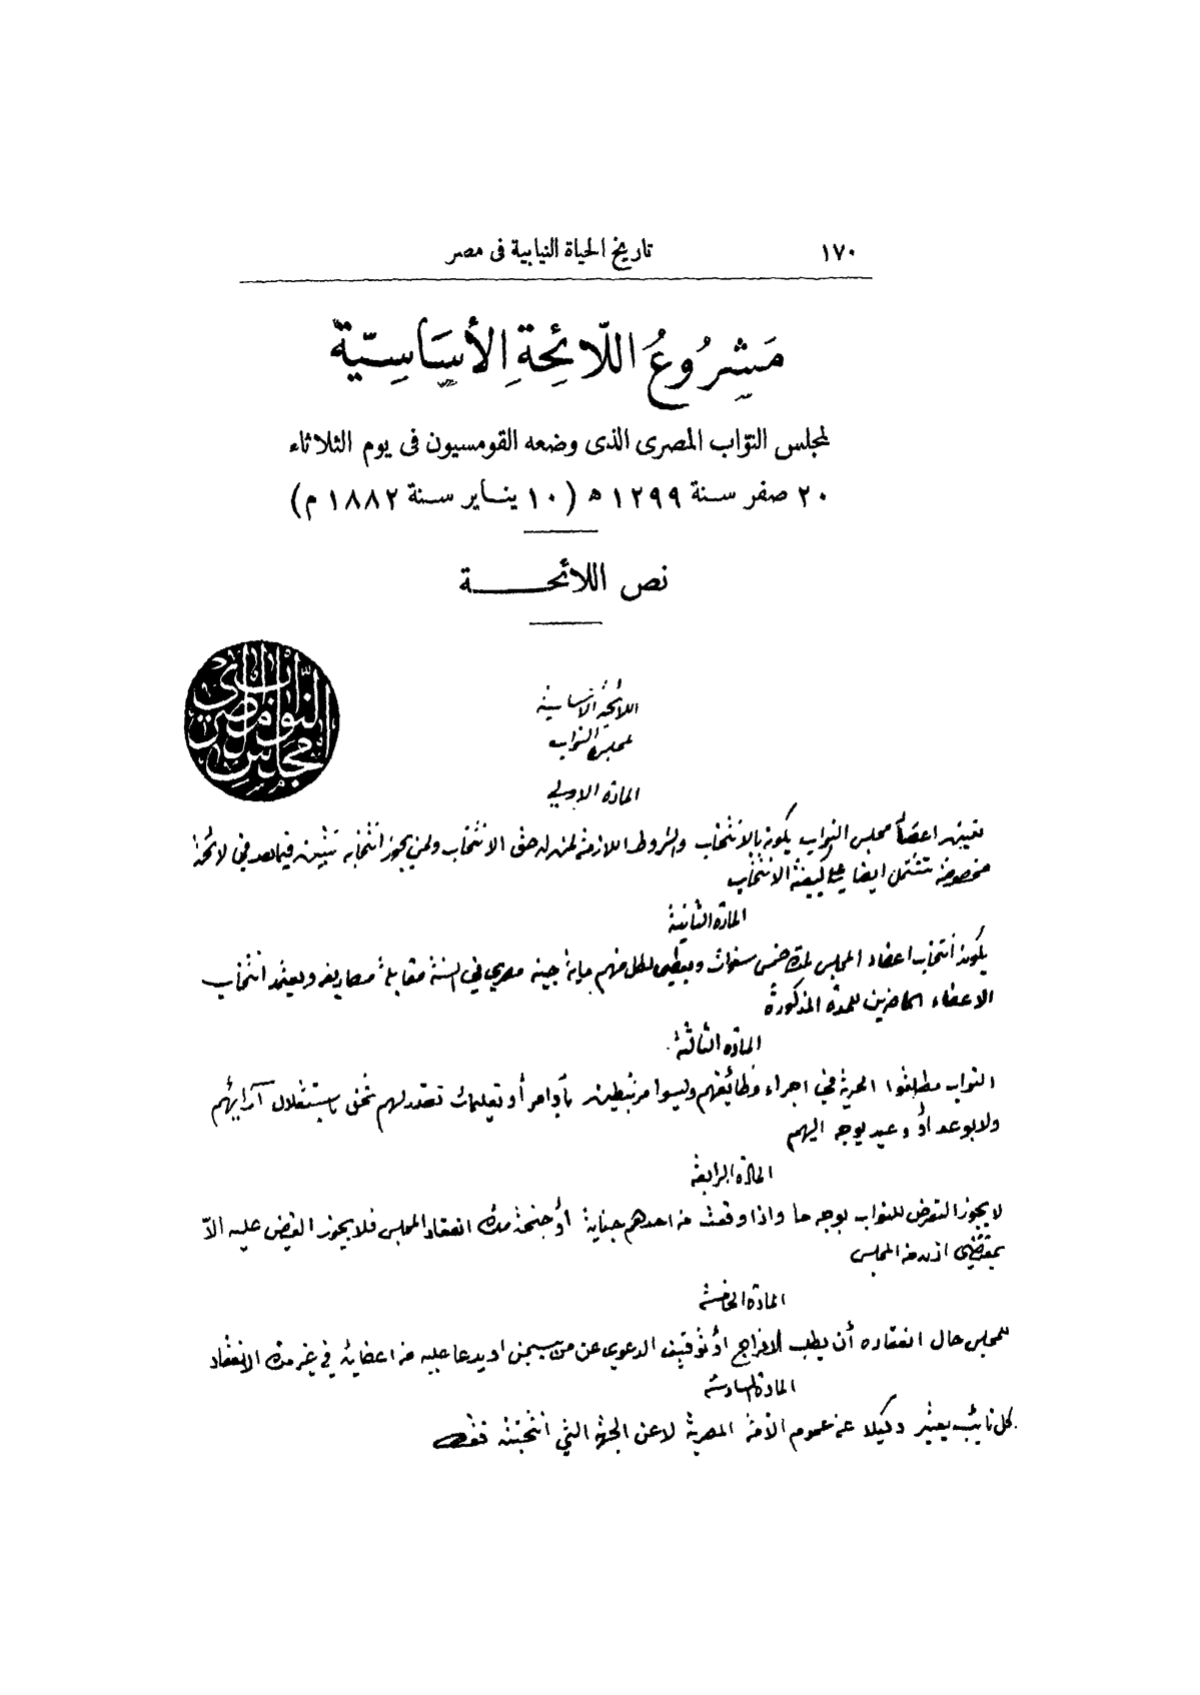 ١٧٠ تاريخ الحياة النيابية فى مصر
مَشرُوعُ اللّائِحةِ الأسَاسِيّة
لمجلس النوّاب المصرى الذى وضعه القومسيون فى يوم الثلاثاء
٢٠ صفر سنة ١٢٩٩ ه (١٠ يناير سنة ١٨٨٢ م)
نص اللائحة
مجلس النواب المصري
اللائحة الاساسية
لمجلس النواب
المادة الاولي
تعيين اعضاء مجلس النواب يكون بالانتخاب والشروط اللازمة لمن له حق الانتخاب ولمن يجوز انتخابه تتبين فيما بعد في لائحة
مخصوصة تشتمل ايضا علي كيفية الانتخاب
المادة الثانية
يكون انتخاب اعضاء المجلس لمدة خمس سنوات ويعطي لكل منهم ماية جنيه مصري في السنة مقابلة مصاريفه ويعتمد انتخاب
الاعضاء الحاضرين للمدة المذكورة
المادة الثالثة
النواب مطلقوا الحرية في اجراء وظائفهم وليسوا مرتبطين بأوامر أو تعليمات تصدر لهم تخل باستقلال آرايهم
ولا بوعد أو وعيد يوجه اليهم
المادة الرابعة
لا يجوز التعرض للنواب بوجه ما واذا وقعت من احدهم جناية أو جنحة مدة انعقاد المجلس فلا يجوز القبض عليه الاّ
بمقتضي اذن من المجلس
المادة الخامسة
للمجلس حال انعقاده أن يطلب الافراج أو توقيف الدعوي عن من يسجن او يدعا عليه من اعضايه في غير مدة الانعقاد
المادة السادسة
كل نائب يعتبر وكيلا عن عموم الأمة المصرية لا عن الجهة التي انتخبته فقط